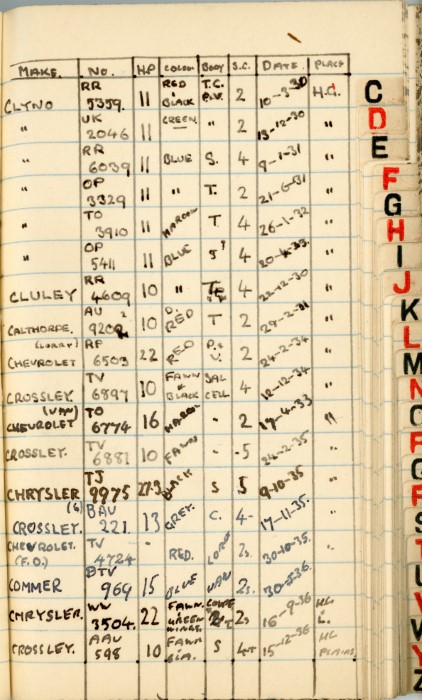 MAKE. NO. H.P COLOUR BODY S.C. DATE. PLACE
CLYNO RR 5359. 11 RED & BLACK T.C. P.V. 2 10-3-30 H.G.
" UK 2046 11 GREEN " 2 13-12-30 "
" RR 6039 11 BLUE S. 4 9-1-31 "
" OP 3329 11 " T. 2 21-6-31 "
" TO 3910 11 MAROON T 4 26-1-32 "
" OP 5411 11 BLUE 4 "
CLULEY RR 4609 10 " 4 22-12-30 "
CALTHORPE. AU 10 D. RED T 2 "
(LORRY) CHEVROLET RP 6503 22 RED 2 24-2-34 "
CROSSLEY. TV 6897 10 FAWN & BLACK SAL CELL 4 12-12-34 "
(VAN) CHEVROLET TO 6774 16 MAROON " 2 19-4-33 "
CROSSLEY. TV 6881 10 FAWN " 5 24-2-35 "
CHRYSLER TJ 9975 27-3 BLACK S 5 9-10-35 "
(6) CROSSLEY. BAU 221. 13 GREY. C. 4 17-11-35. "
CHEVROLET. (F.O.) TV 4724 - RED. 2s 30-10-35. "
COMMER BTV 969 15 BLUE VAN 2s. 30-5-36. "
CHRYSLER. WW 3504. 22 FAWN. GREEN WINGS. COUPE 2s 16-9-36
CROSSLEY. AAU 598 10 FAWN S 15-12-36 PLAINS
C
D
E
F
G
H
I
J
K
L
M
N
O
P
Q
R
S
T
U
V
W
Y
Z